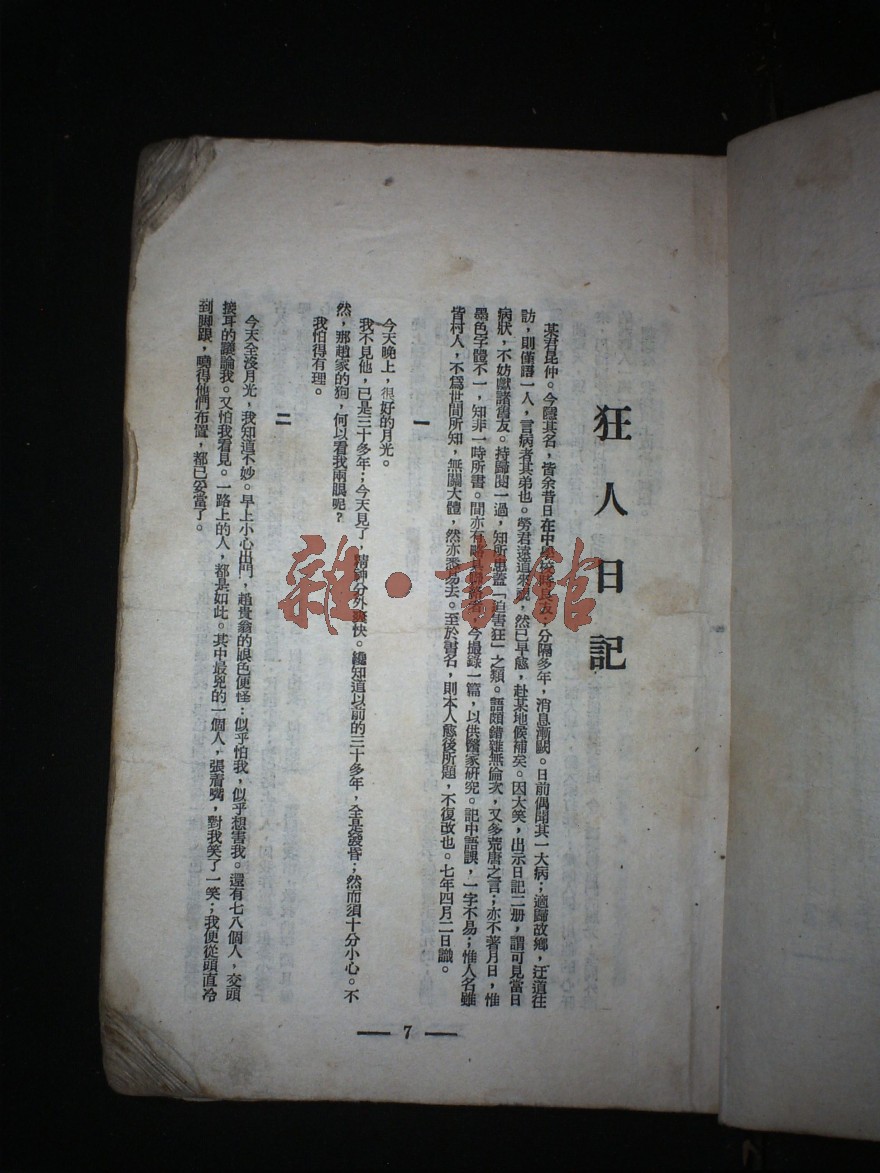 狂人日記
某君昆仲。今隱其名,皆余昔日在中學校時良友;分隔多年,消息漸闕。日前偶聞其一大病;適歸故鄉,迂道往
訪,則僅語一人,言病者其弟也。勞君遠道來視,然已早愈,赴某地候補矣。因大笑,出示日記二册,謂可見當日
病狀,不妨獻諸舊友。持歸閱一過,知所患蓋「迫害狂」之類。語頗錯雜無倫次,又多荒唐之言;亦不著月日,惟
墨色字體不一,知非一時所書。間亦有略具聯絡者,今撮錄一篇,以供醫家研究。記中語誤,一字不易;惟人名雖
皆村人,不爲世間所知,無關大體,然亦悉易去。至於書名,則本人愈後所題,不復改也。七年四月二日識。
一
今天晚上,很好的月光。
我不見他,已是三十多年;今天見了,精神分外爽快。纔知道以前的三十多年,全是發昏;然而須十分小心。不
然,那趙家的狗,何以看我兩眼呢?
我怕得有理。
二
今天全沒月光,我知道不妙。早上小心出門,趙貴翁的眼色便怪:似乎怕我,似乎想害我。還有七八個人,交頭
接耳的議論我。又怕我看見。一路上的人,都是如此。其中最兇的一個人,張着嘴,對我笑了一笑;我便從頭直冷
到脚跟,曉得他們布置,都已妥當了。
— 7 —
雜·書館